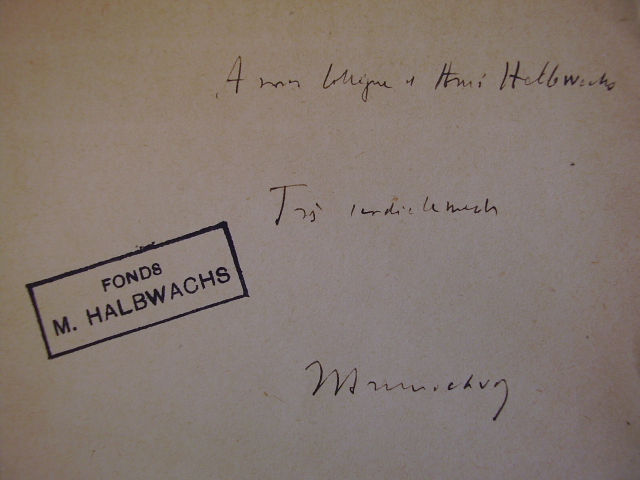 A mon collègue et Ami Halbwachs
Très cordialement
FONDS
M. HALBWACHS